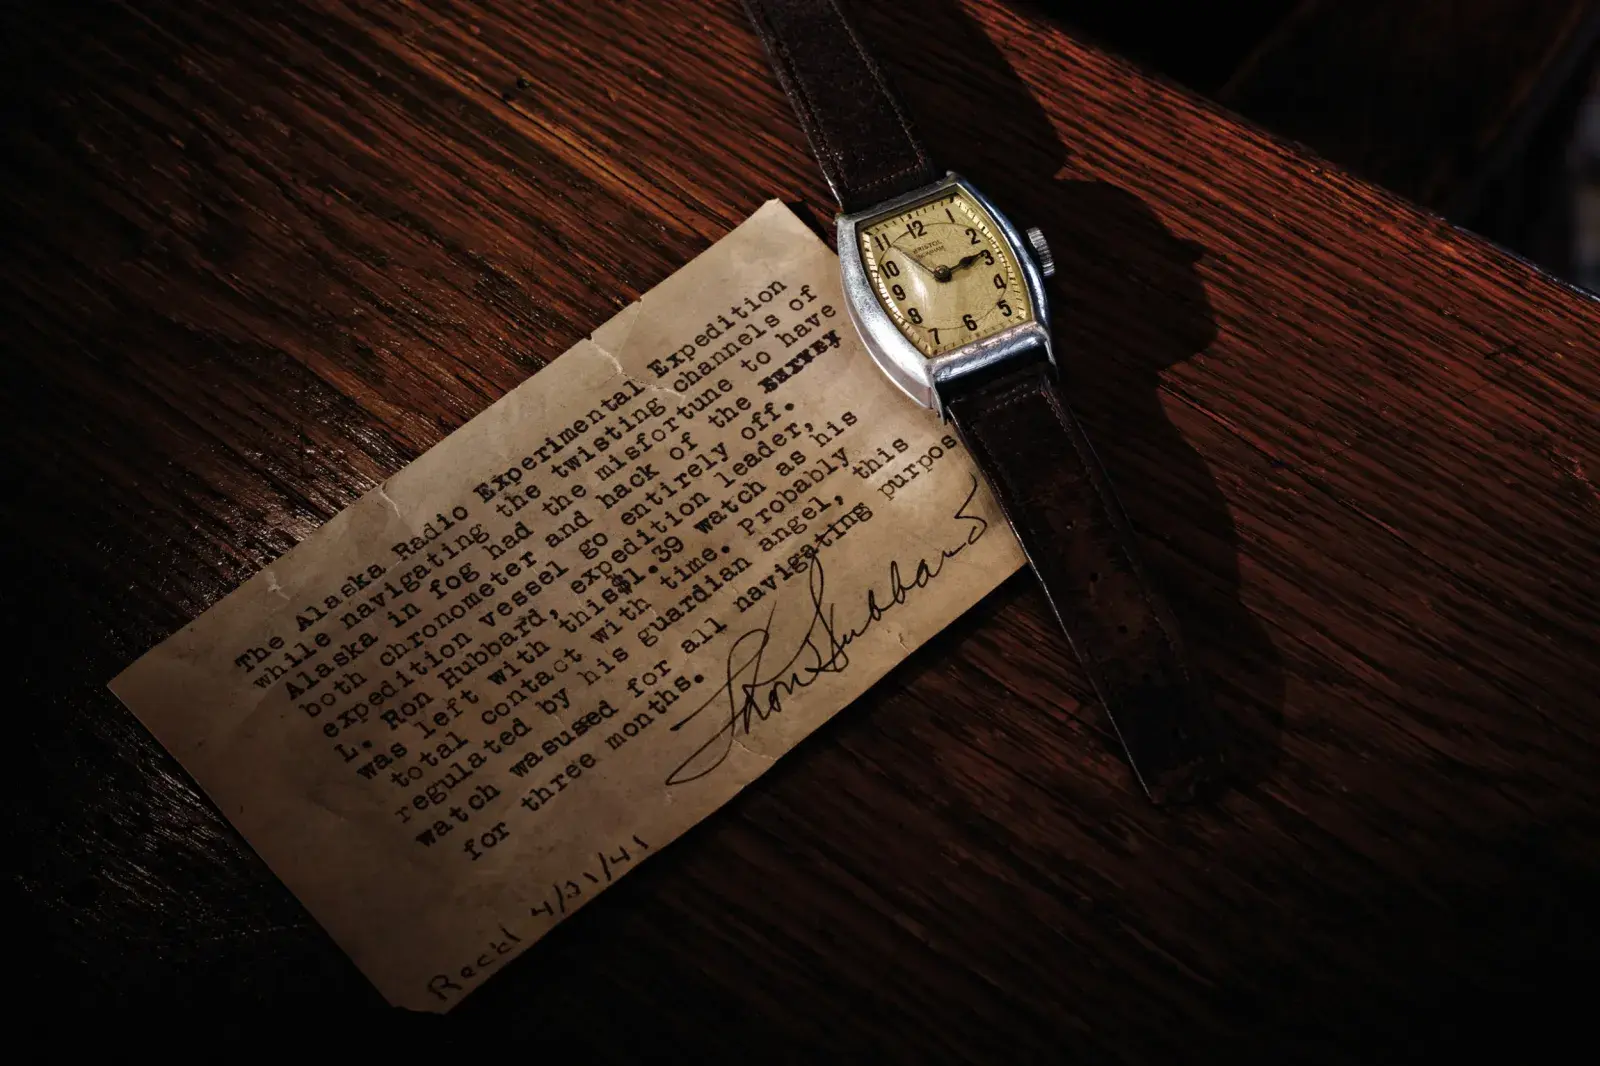 The Alaska Radio Experimental Expedition
while navigating the twisting channels of
Alaska in fog had the misfortune to have
both chronometer and hack of the
expedition vessel go entirely off.
L. Ron Hubbard, expedition leader,
was left with this$1.39 watch as his
total contact with time. Probably
regulated by his guardian angel, this
watch wasused for all navigating purpos
for three months.
L Ron Hubbard
Recd 4/21/41
12
1
2
3
4
5
6
7
8
9
10
11
BRISTOL